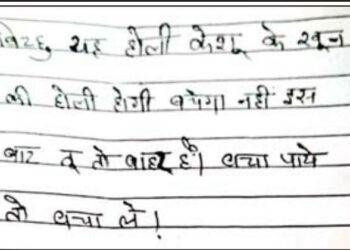 विरह, यह होली केशू के खून
की होली होगी बचेगा नहीं इस
बार तू तो बाहर है। बचा पाये
तो बचा ले!